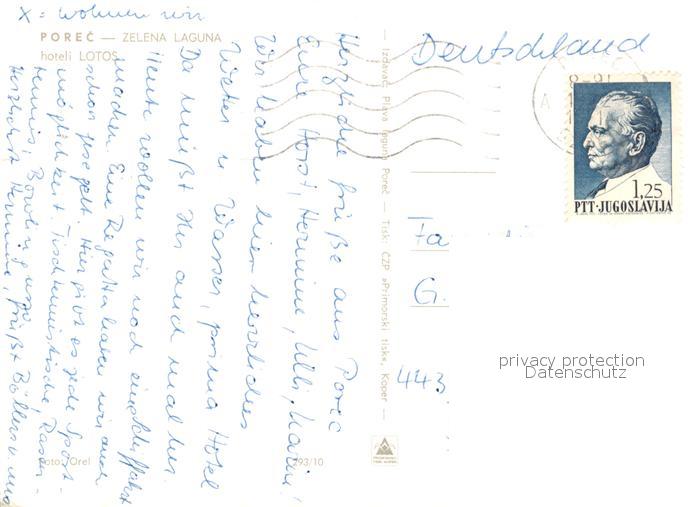 X = wohnen wir
POREČ — ZELENA LAGUNA
hoteli LOTOS
Herzliche Grüße aus Poreč
Eure Horst, Hermine, Ulli, Karin!
Wir haben hier herrliches
Wetter u Wasser, prima Hotel
Da müßt Ihr auch mal her.
Heute wollen wir noch eine Schiffahrt
machen. Eine Regatta haben wir auch
schon gesegelt. Hier gibt es jede Sport-
möglichkeit. Tischtennistische, Rasen-
tennis, Bowling usw.
Herzlichst Hermine, grüßt Böllers und
Foto: Orel
293/10
— Izdavač: Plava laguna Poreč — Tisk: ČZP »Primorski tisk«, Koper —
Deutschland
8-91
A
1,25
PTT·JUGOSLAVIJA
Fa
G.
443
privacy protection
Datenschutz